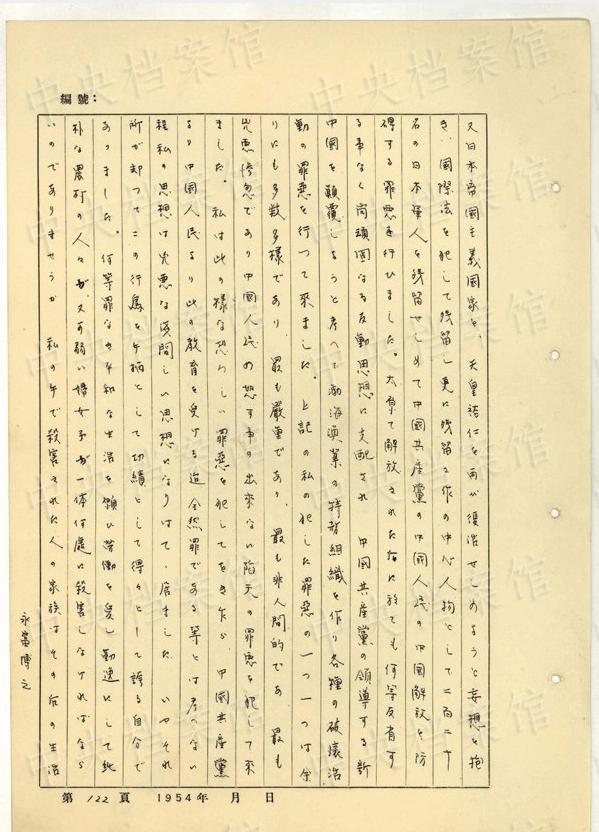 編號：
又日本帝国主義国家を、天皇裕仁を再び復活せしめようと妄想を抱
き、国際法を犯して残留し更に残留工作の中心人物として二百二十
名の日本軍人を残留せしめて中国共産党の中国人民の中国解放を防
碍する罪悪を行ひました。太原で解放された后に於ても何等反省す
る事なく尚頑固なる反動思想に支配され 中国共産党の領導する新
中国を顛覆しようと考へて渤海漁業の特務組織を作り各種の破壊活
動の罪悪を行つて来ました。上記の私の犯した罪悪の一つ一つは余
りにも多数多様であり、最も厳重であり、最も非人間的であ 最も
兇悪惨忽であり中国人民の恕す事の出来ない滔天の罪悪を犯して来
ました。私は此の様な恐ろしい罪悪を犯してをき乍ら、中国共産党
より中国人民より此の教育を受ける迄全然罪である等とは考へない
程私の思想は兇悪な 思想になりはてゝ居ました いやそれ
所か却つてこの行為を手柄として功績として得々として誇る自分で
ありました。何等罪なき平和な生活を願ひ労働を愛し勤速にして純
朴な農村の人々が、又か弱い婦女子が一体何處に殺害しなければなら
いのでありませうか 私の手で殺害された人の家族はその后の生活
永富博之
第 122 頁 1954年 月 日
中央档案馆